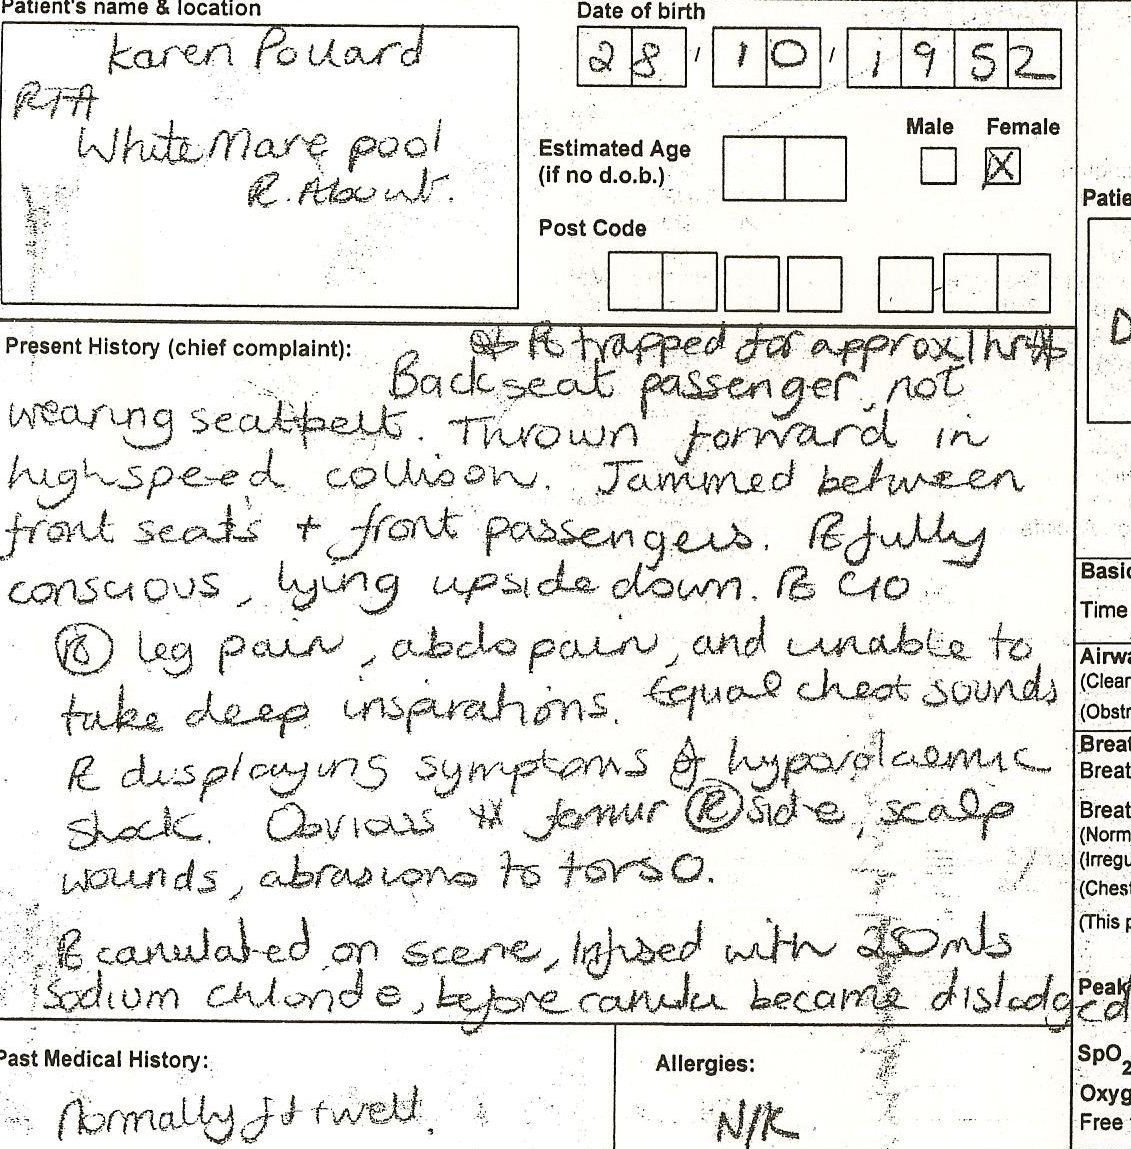 Patient's name & location
Karen Pollard
RTA
White Mare pool
R.About.
Date of birth
28 / 10 / 1952
Estimated Age
(if no d.o.b.)
Male Female
X
Post Code
Patie
D
Present History (chief complaint):
* Pt trapped for approx 1hr *
Back seat passenger, not
wearing seatbelt. Thrown forward in
high speed collison. Jammed between
front seats + front passengers. Pt fully
conscious, lying upside down. Pt C/O
(R) leg pain, abdo pain, and unable to
take deep inspirations. Equal chest sounds
Pt displaying symptoms of hypovolaemic
shock. Obvious # femur (R) side, scalp
wounds, abrasions to torso.
Pt canulated on scene, Infused with 250mls
Sodium Chloride, before canula became dislodged
Past Medical History:
Normally fit + well.
Allergies:
N/K
Basic
Time
Airwa
(Clear
(Obstr
Breat
Breat
Breat
(Norm
(Irregu
(Chest
(This p
Peak
SpO2
Oxyg
Free